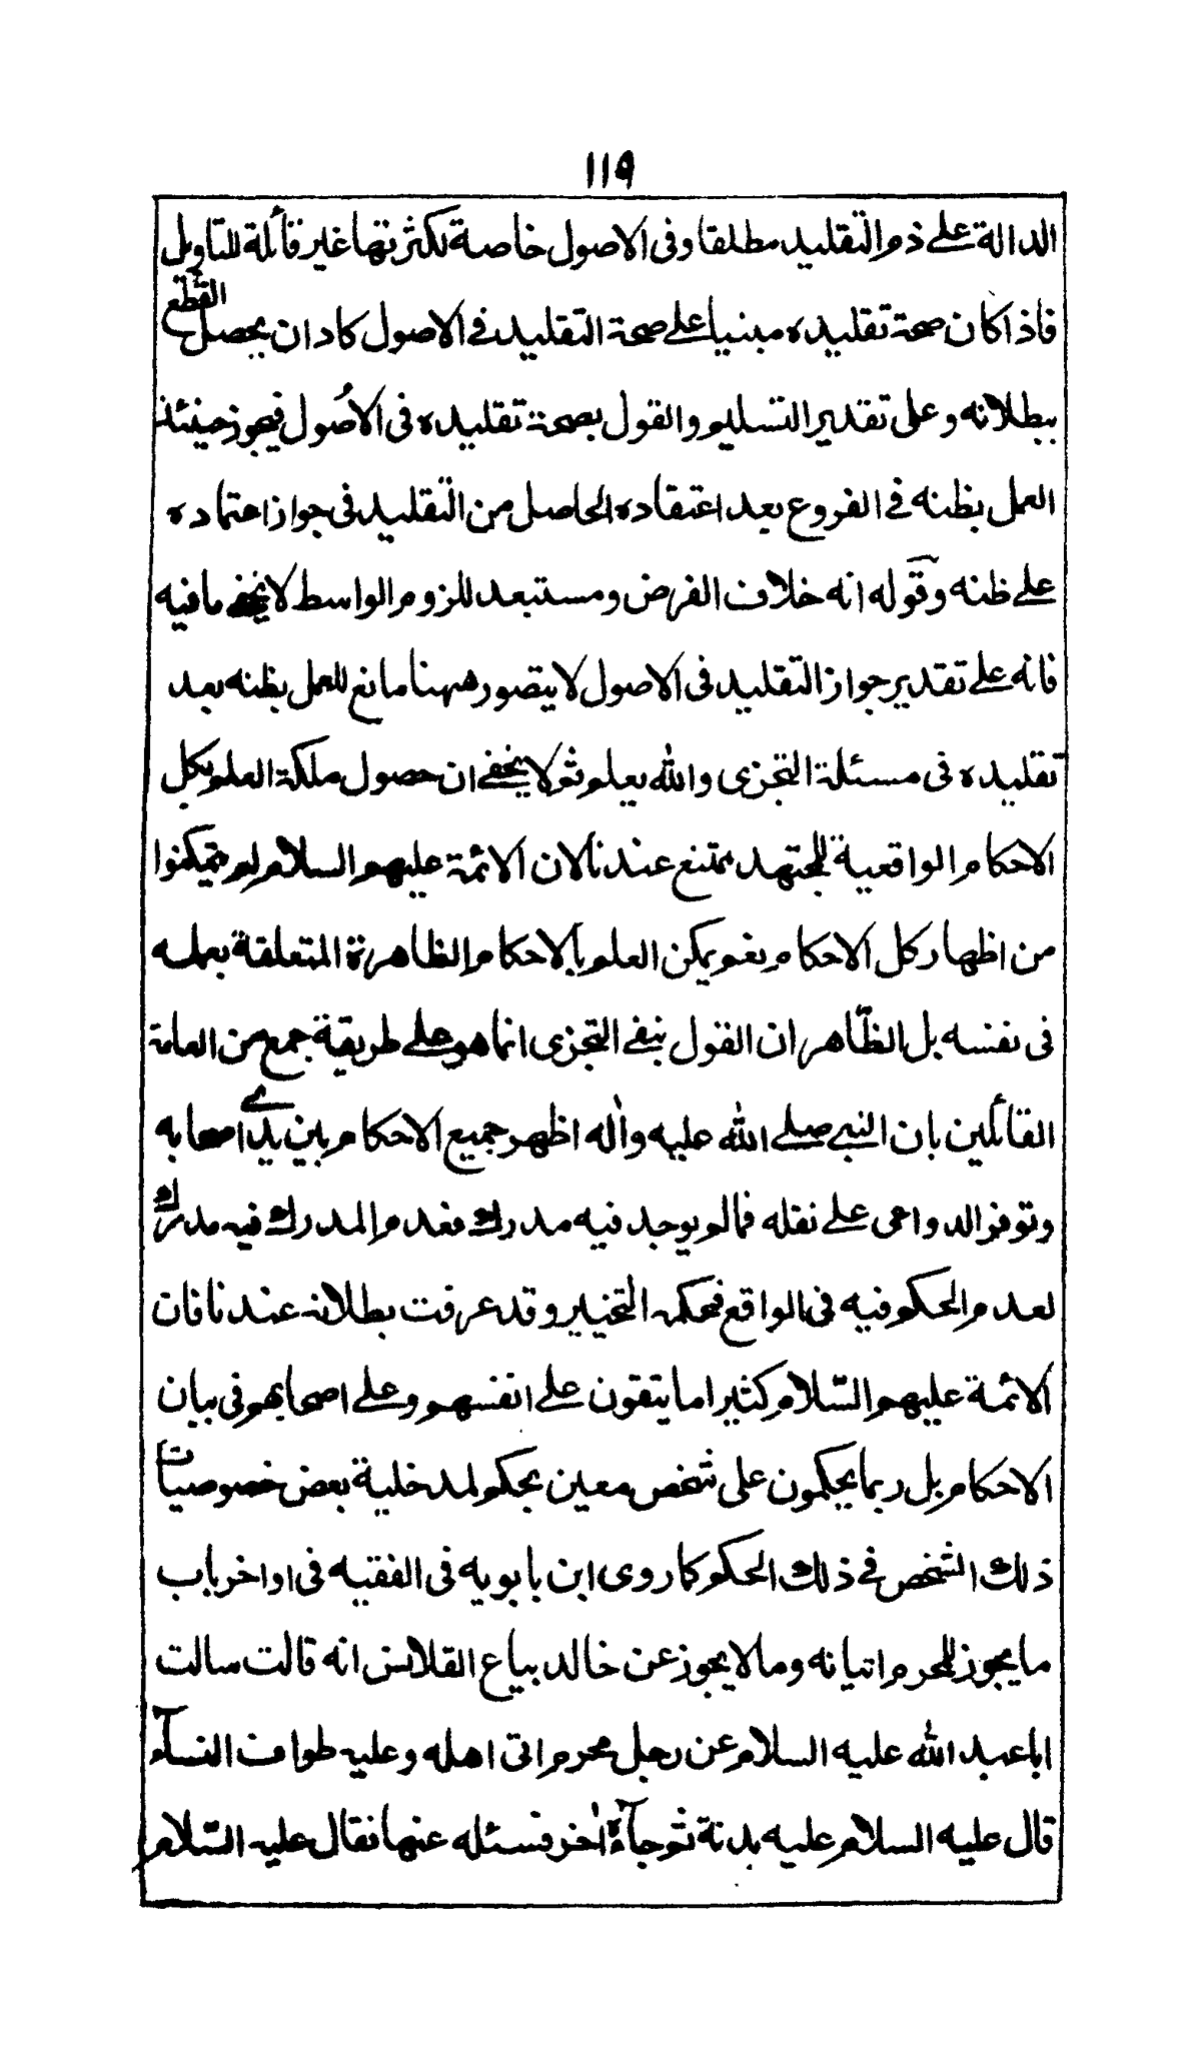 ١١٩
الدالة على ذم التقليد مطلقا وفى الاصول خاصة لكثرتها غير قائلة للتاويل
فاذا كان صحة تقليده مبنيا على صحة التقليد فى الاصول كاد ان يحصل القطع
ببطلانه وعلى تقدير التسليم والقول بصحة تقليده فى الاُصول فيجوز حينئذ
العمل بظنه فى الفروع بعد اعتقاده الحاصل من التّقليد فى جواز اعتماده
على ظنه وقوله انه خلاف الفرض ومستبعد للزوم الواسط لا يخفى ما فيه
فانه على تقدير جواز التقليد فى الاصول لا يتصور ههنا مانع للعمل بظنه بعد
تقليده فى مسئلة التجزى والله يعلم ثم لا يخفى ان حصول ملكة العلم بكل
الاحكام الواقعية للمجتهد ممتنع عندنا لان الائمة عليهم السلام لم يتمكنوا
من اظهار كل الاحكام نعم يمكن العلم بالاحكام الظاهرة المتعلقة بعمله
فى نفسه بل الظّاهر ان القول بنفى التجزى انما هو على طريقة جمع من العامة
القائلين بان النبى صلى الله عليه واٰله اظهر جميع الاحكام بين يدى اصحابه
وتوفر الدواعى على نقله فما لم يوجد فيه مدرك فعدم المدرك فيه مدرك
لعدم الحكم فيه فى الواقع فحكمه التخيير وقد عرفت بطلانه عندنا فان
الائمة عليهم السّلام كثيرا ما يتقون على انفسهم وعلى اصحابهم فى بيان
الاحكام بل ربما يحكمون على شخص معين بحكم لمدخلية بعض خصوصيات
ذلك الشخص فى ذلك الحكم كما روى ابن بابويه فى الفقيه فى اواخر باب
ما يجوز للمحرم اتيانه وما لا يجوز عن خالد بياع القلانس انه قالت سالت
ابا عبد الله عليه السلام عن رجل محرم اتى اهله وعليه طواف النسآء
قال عليه السلام عليه بدنة ثم جآءه اٰخر فسئله عنها فقال عليه السّلام